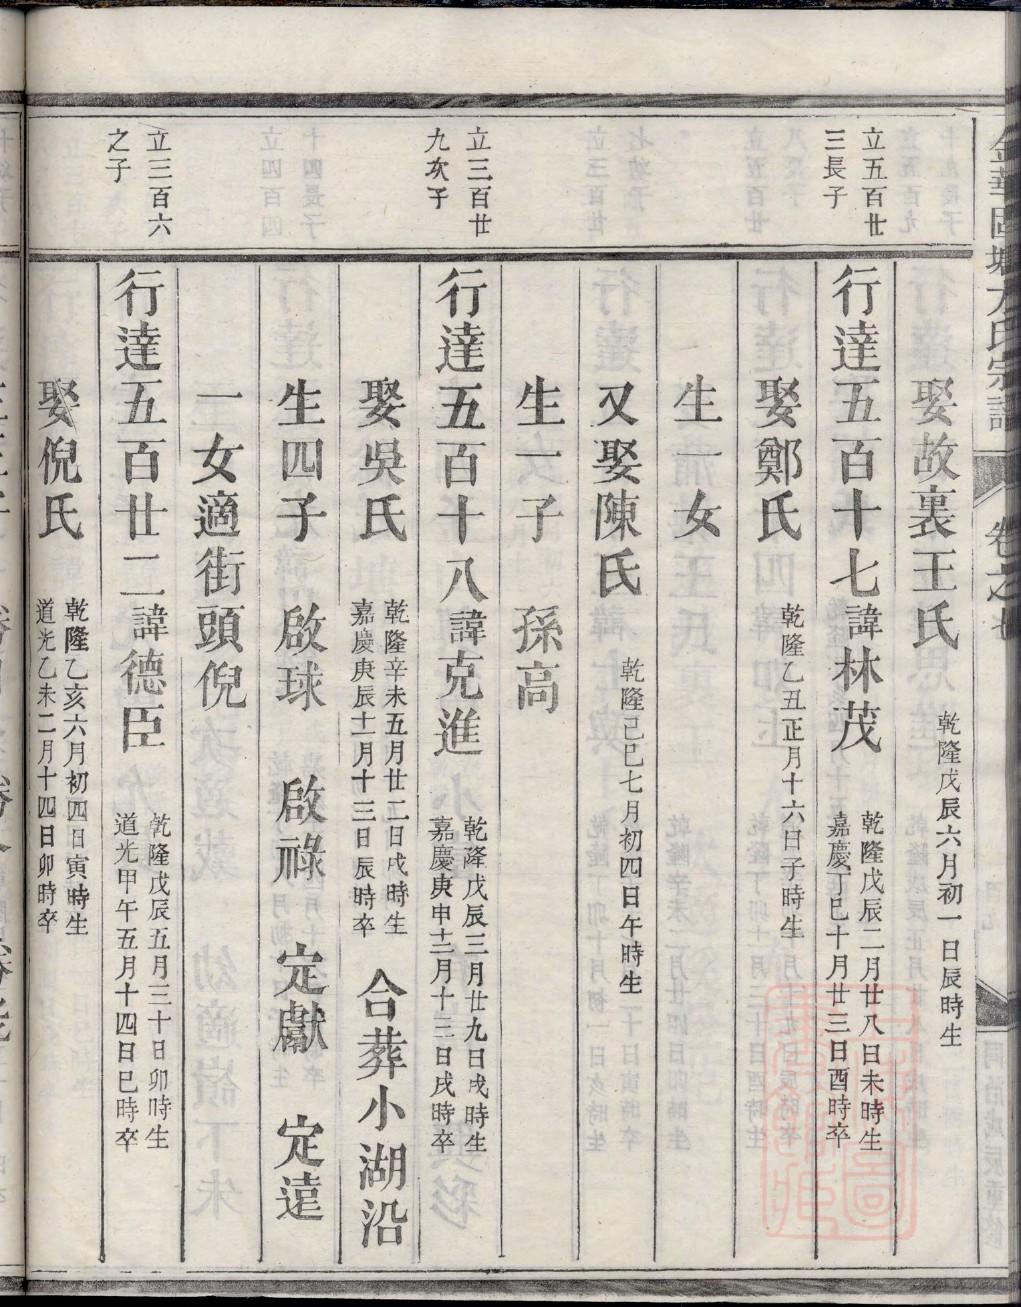 娶故裏王氏 乾隆戊辰六月初一日辰時生
立五百廿
三長子
行達五百十七諱林茂 乾隆戊辰二月廿八日未時生
嘉慶丁巳十月廿三日酉時卒
娶鄭氏 乾隆乙丑正月十六日子時生
生一女
又娶陳氏 乾隆己巳七月初四日午時生
生一子 孫高
立三百廿
九次子
行達五百十八諱克進 乾隆戊辰三月廿九日戌時生
嘉慶庚申十二月十三日戌時卒
娶吳氏 乾隆辛未五月廿二日戌時生
嘉慶庚辰十一月十三日辰時卒
合葬小湖沿
生四子 啟球 啟祿 定獻 定遠
一女適街頭倪
立三百六
之子
行達五百廿二諱德臣 乾隆戊辰五月三十日卯時生
道光甲午五月十四日巳時卒
娶倪氏 乾隆乙亥六月初四日寅時生
道光乙未二月十四日卯時卒